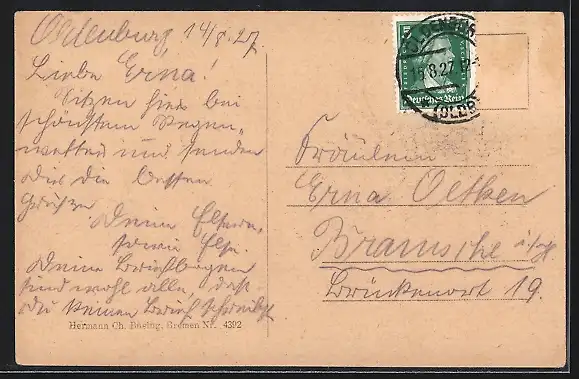 Oldenburg 14/8.27.
Liebe Erna!
Sitzen hier bei
schönstem Regen-
wetter und senden
Dir die besten
Grüße
Deine Eltern,
sowie Else.
Deine Briefbogen
sind wohl alle, daß
du keinen Brief schreibst
Hermann Ch. Büsing, Bremen Nr. 4392
OLDENBURG
16.8.27.
(OLDB)
Deutsches Reich
Fräulein
Erna Oetken
Bramsche i/H
Brückenort 19.